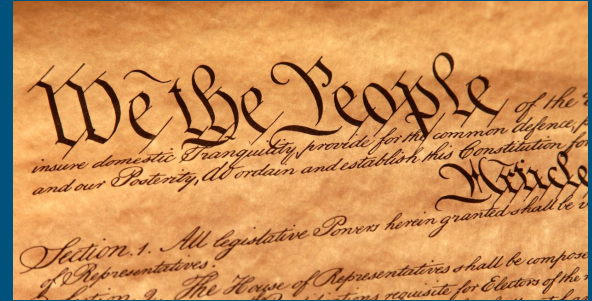 We the People of the
insure domestic Tranquility, provide for the common defence,
and our Posterity, do ordain and establish this Constitution for
Article
Section. 1. All legislative Powers herein granted shall be
of Representatives
The House of Representatives shall be compose
requisite for Electors of the